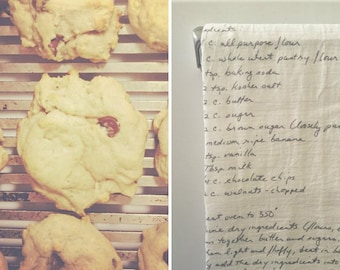 ingredients:
c. all purpose flour
c. whole wheat pastry flour
tsp. baking soda
tsp. kosher salt
c. butter
c. sugar
c. brown sugar (loosely pa
medium ripe banana
tsp. vanilla
Tbsp milk
c. chocolate chips
c. walnuts - chopped
eat oven to 350°
ine dry ingredients (flours,
m together butter and sugars
light and fluffy, beat in b
add the dry ingredients into